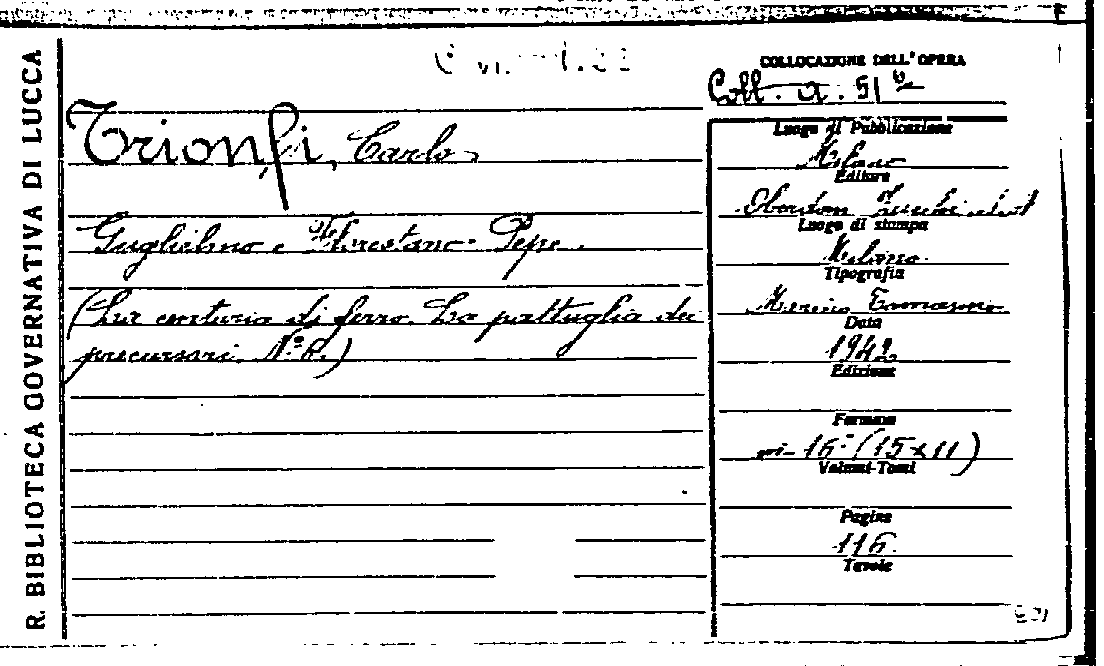 R. BIBLIOTECA GOVERNATIVA DI LUCCA
COLLOCAZIONE DELL'OPERA
Coll. a. 51
Trionfi, Carlo
Guglielmo e Florestano Pepe.
(La centuria di ferro. La pattuglia dei
precursori. N.° 6.)
Luogo di Pubblicazione
Milano
Editore
Oberdan Zucchi
Luogo di stampa
Milano.
Tipografia
Tamagno
Data
1942
Edizione
Formato
in-16° (15x11)
Volumi-Tomi
Pagine
116.
Tavole